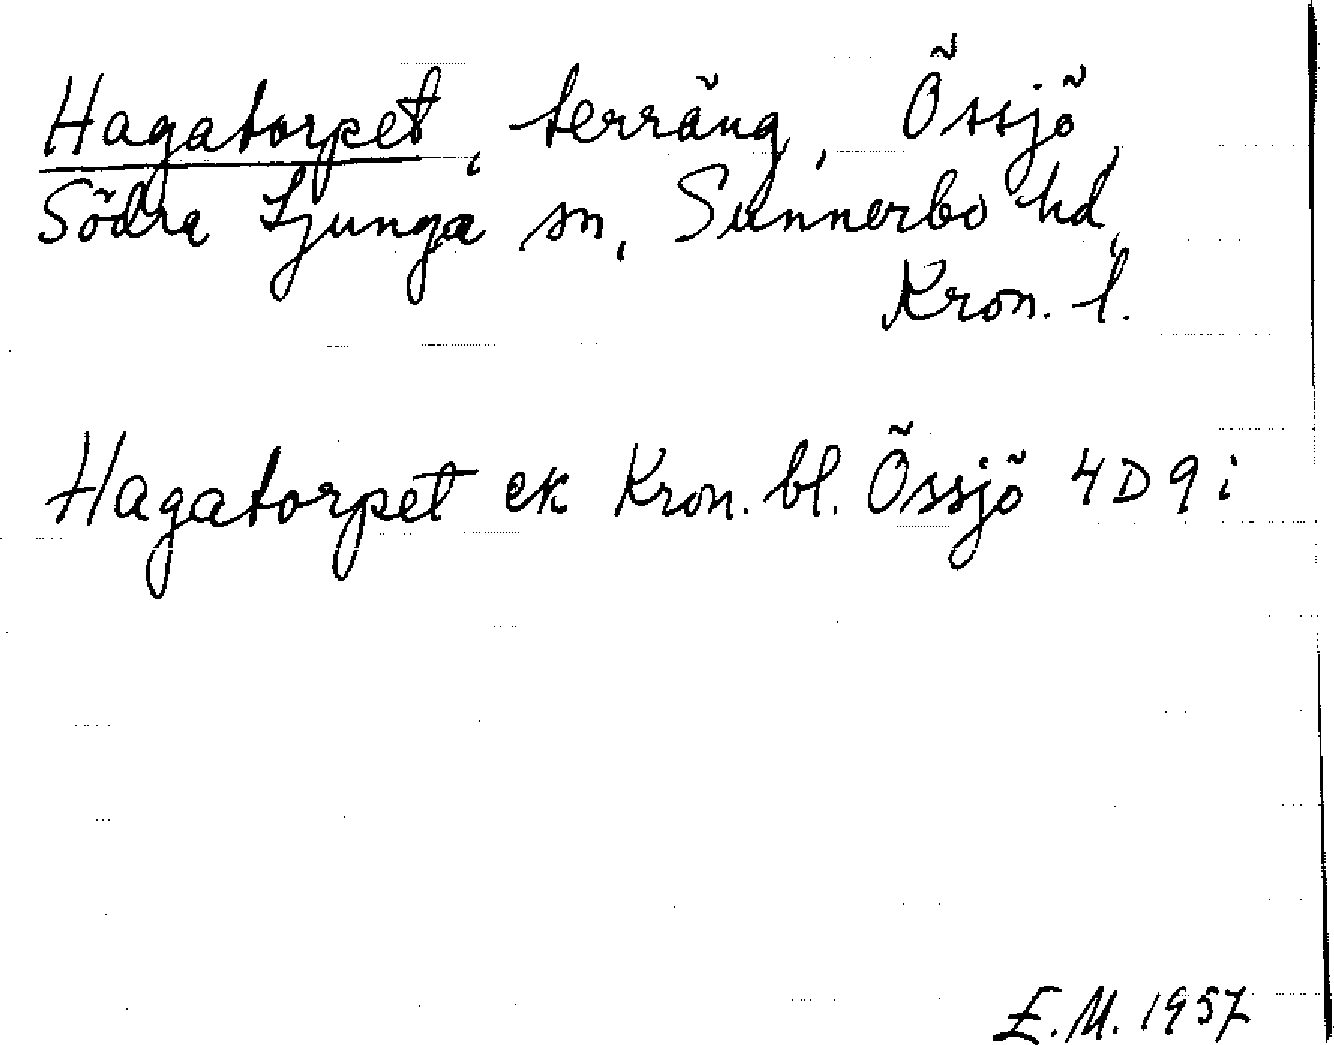 Hagatorpet, terräng, Össjö,
Södra Ljunga sn, Sunnerbo hd,
Kron. l.
Hagatorpet ek Kron. bl. Össjö 4D9i
E.M. 1957